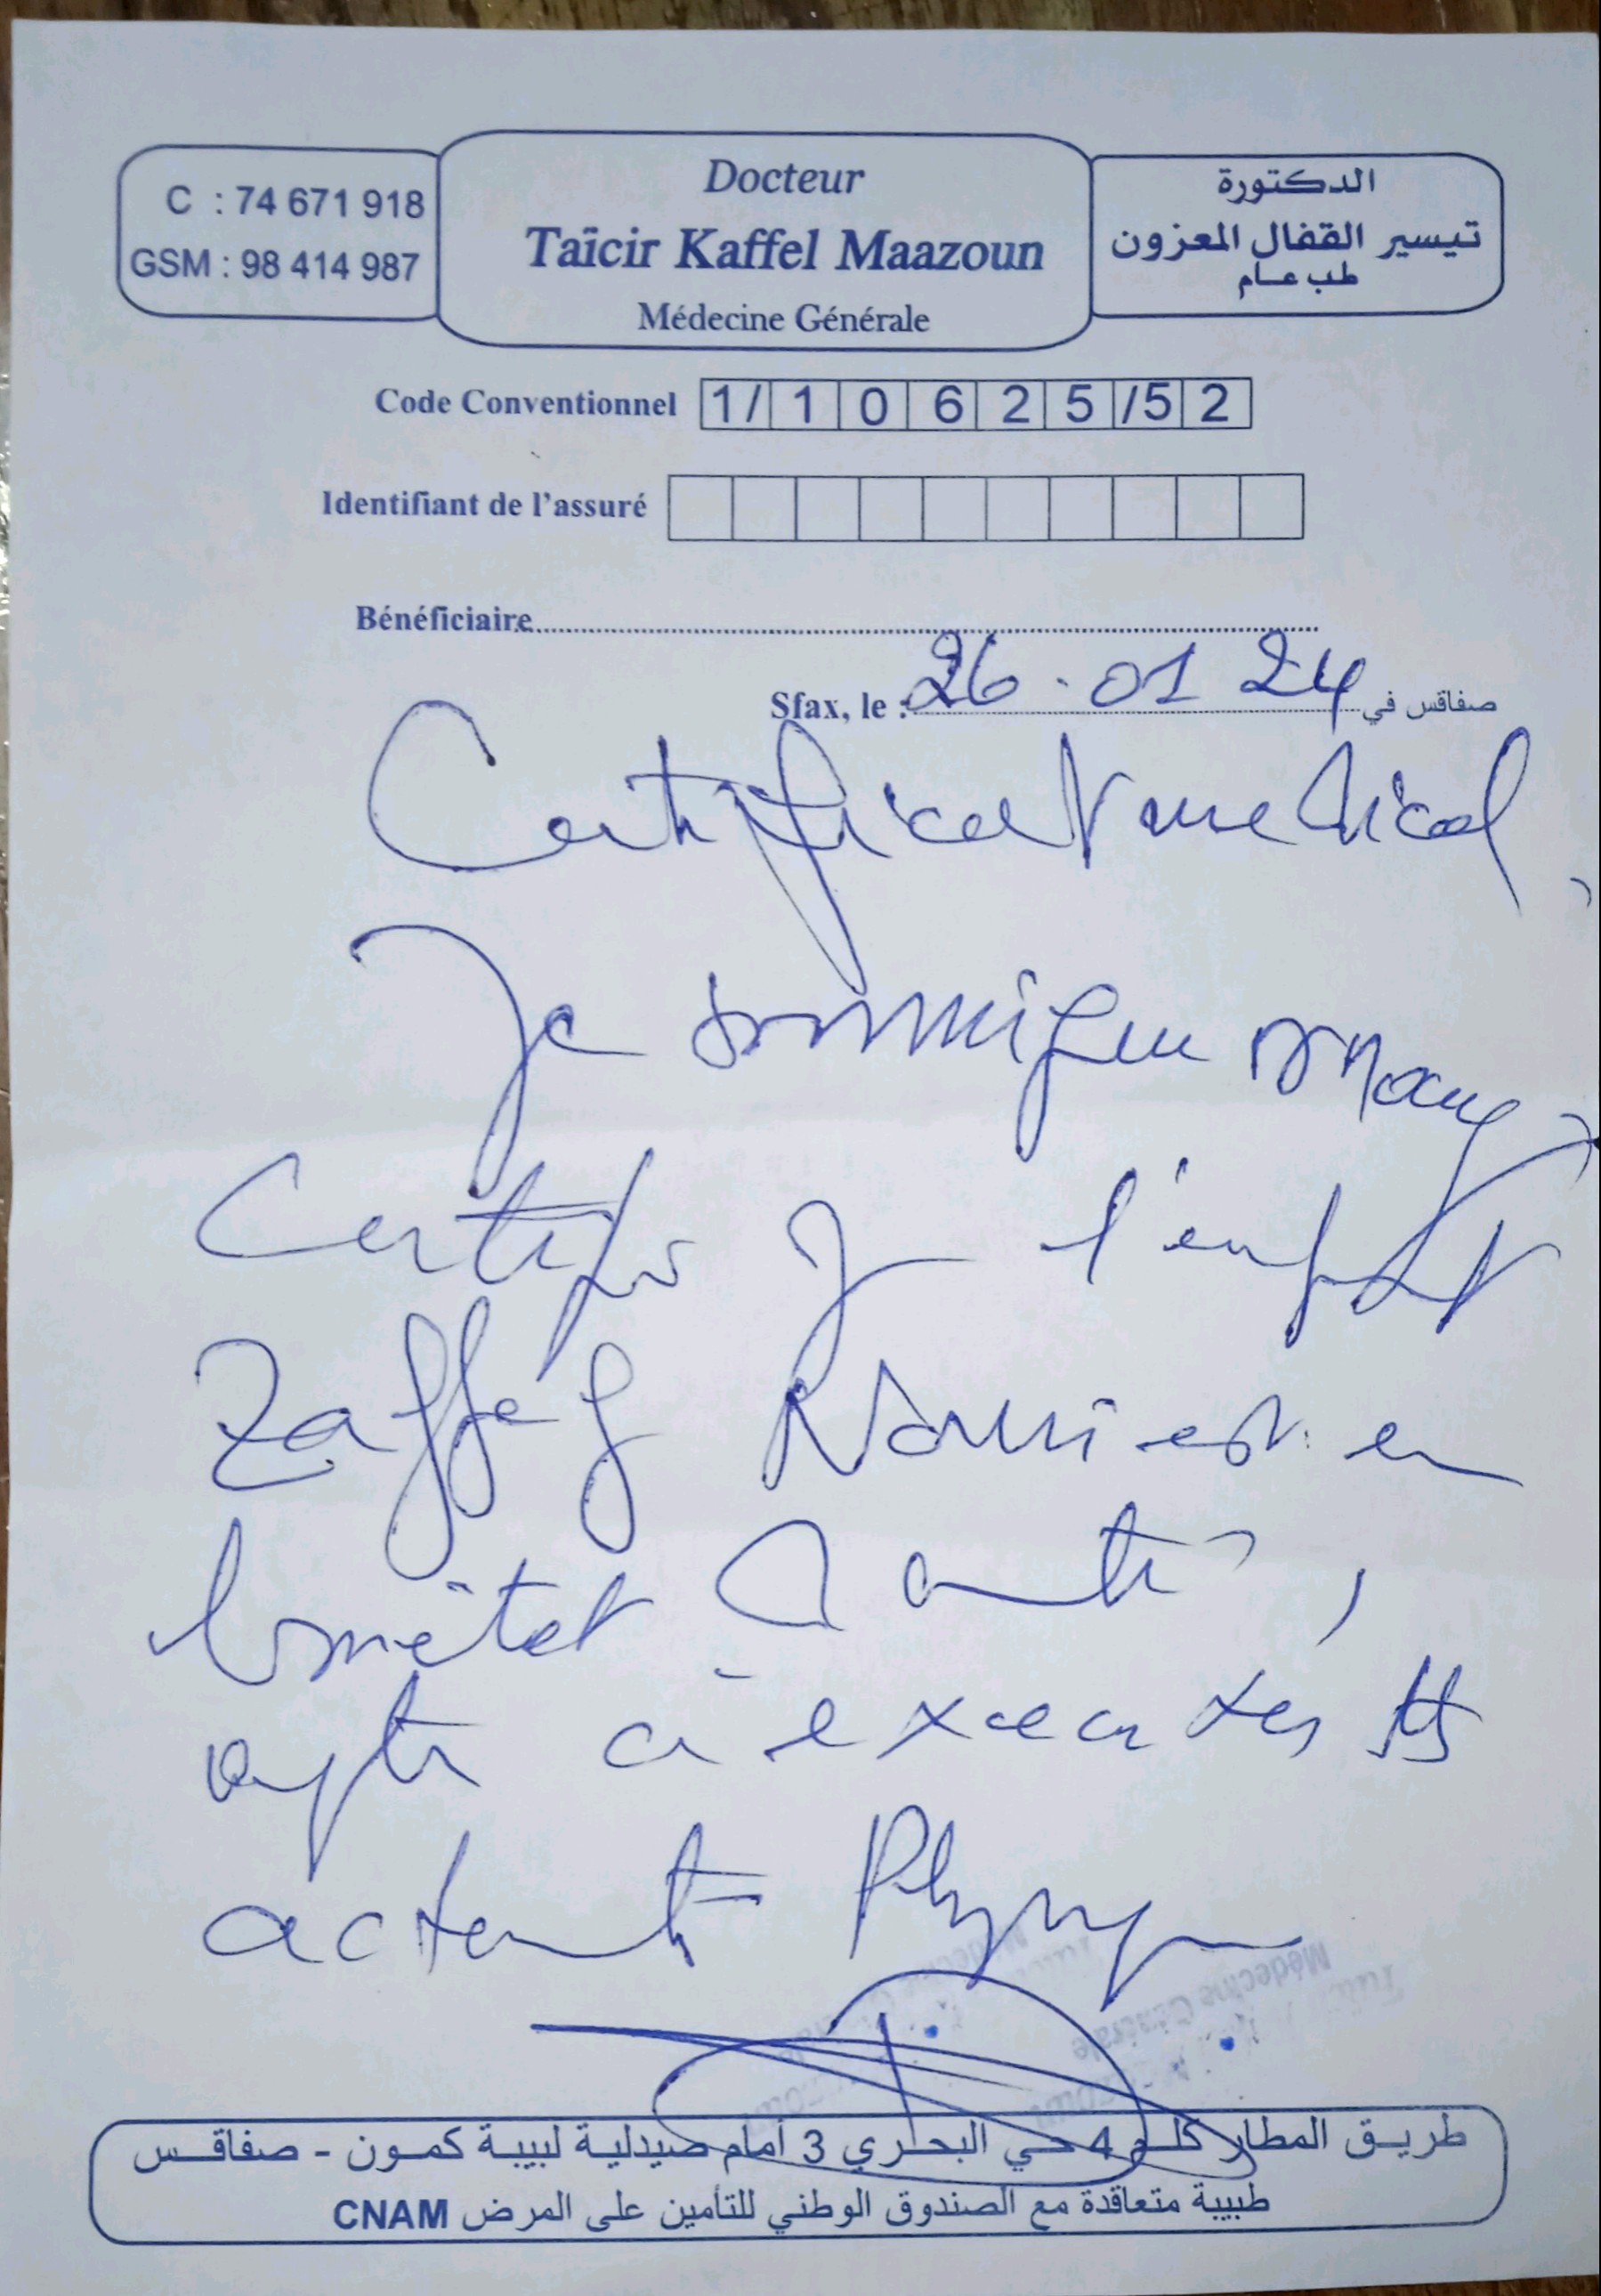 C : 74 671 918
GSM : 98 414 987
Docteur
Taïcir Kaffel Maazoun
Médecine Générale
الدكتورة
تيسير القفال المعزون
طب عام
Code Conventionnel 1/ 1 0 6 2 5 /5 2
Identifiant de l'assuré
Bénéficiaire
Sfax, le : 26 . 01 24 صفاقس في
Certificat medical
Je soussigne
Certifie q l'enfant
Zaffeg est en
bon état Santé,
apte à executer tts
activité Physique
طريق المطار كلم 4 حي البحري 3 أمام صيدلية لبيبة كمون - صفاقس
طبيبة متعاقدة مع الصندوق الوطني للتأمين على المرض CNAM